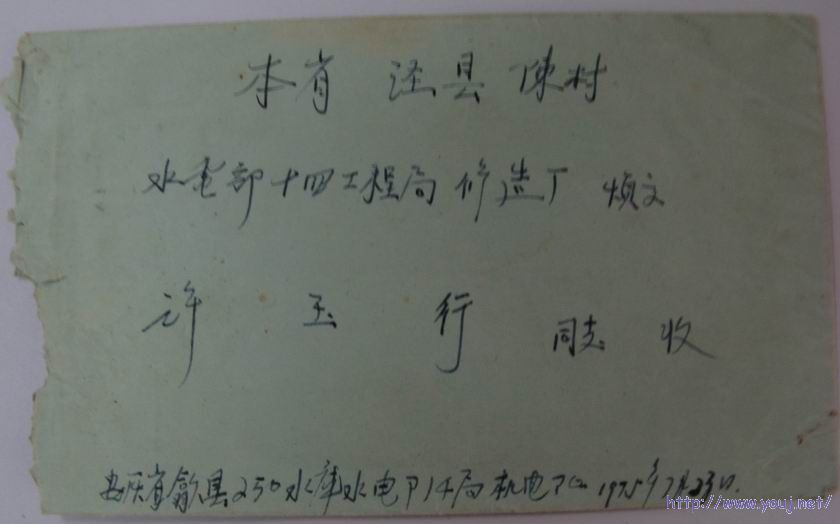 本省 泾县 陳村
水电部十四工程局修造厂 烦交
许玉行 同志 收
省歙县250水库水电 14局机电 1975年7月23日.
http://www.youj.net/